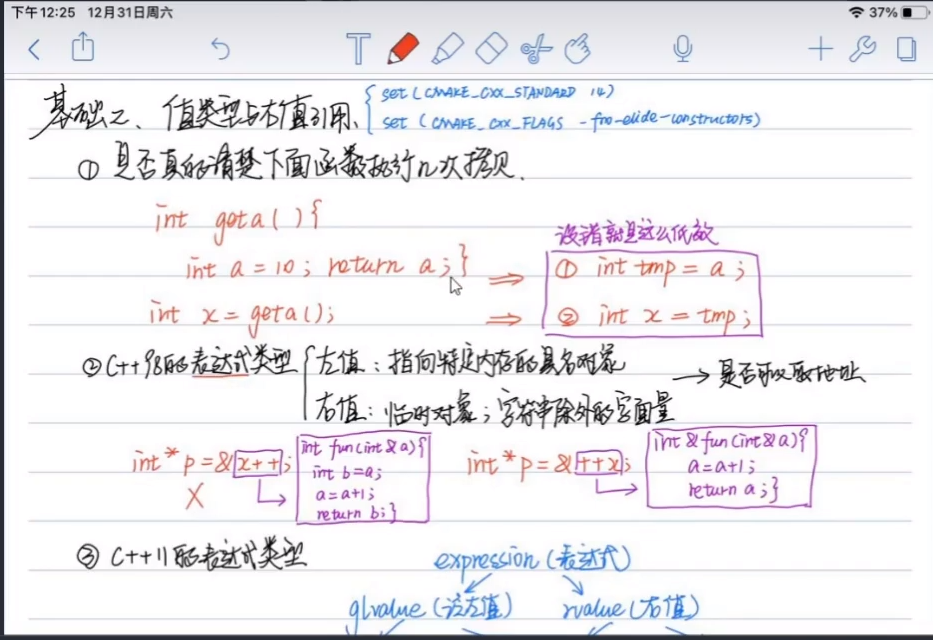 下午12:25 12月31日周六
37%
基础二、值类型与右值引用、
set (CMAKE_CXX_STANDARD 14)
set (CMAKE_CXX_FLAGS -fno-elide-constructors)
① 是否真的清楚下面函数执行几次拷贝.
int geta(){
int a = 10; return a;}
int x = geta();
没错就是这么低效
① int tmp = a;
② int x = tmp;
②C++98的表达式类型
左值：指向特定内存的具名对象
右值：临时对象；字符串除外的字面量
→ 是否可以取地址
int* p = &x++;
X
int fun(int&a){
int b=a;
a=a+1;
return b;}
int* p = &++x;
int & fun(int&a){
a=a+1;
return a;}
③ C++11的表达式类型
expression (表达式)
glvalue (泛左值) rvalue (右值)